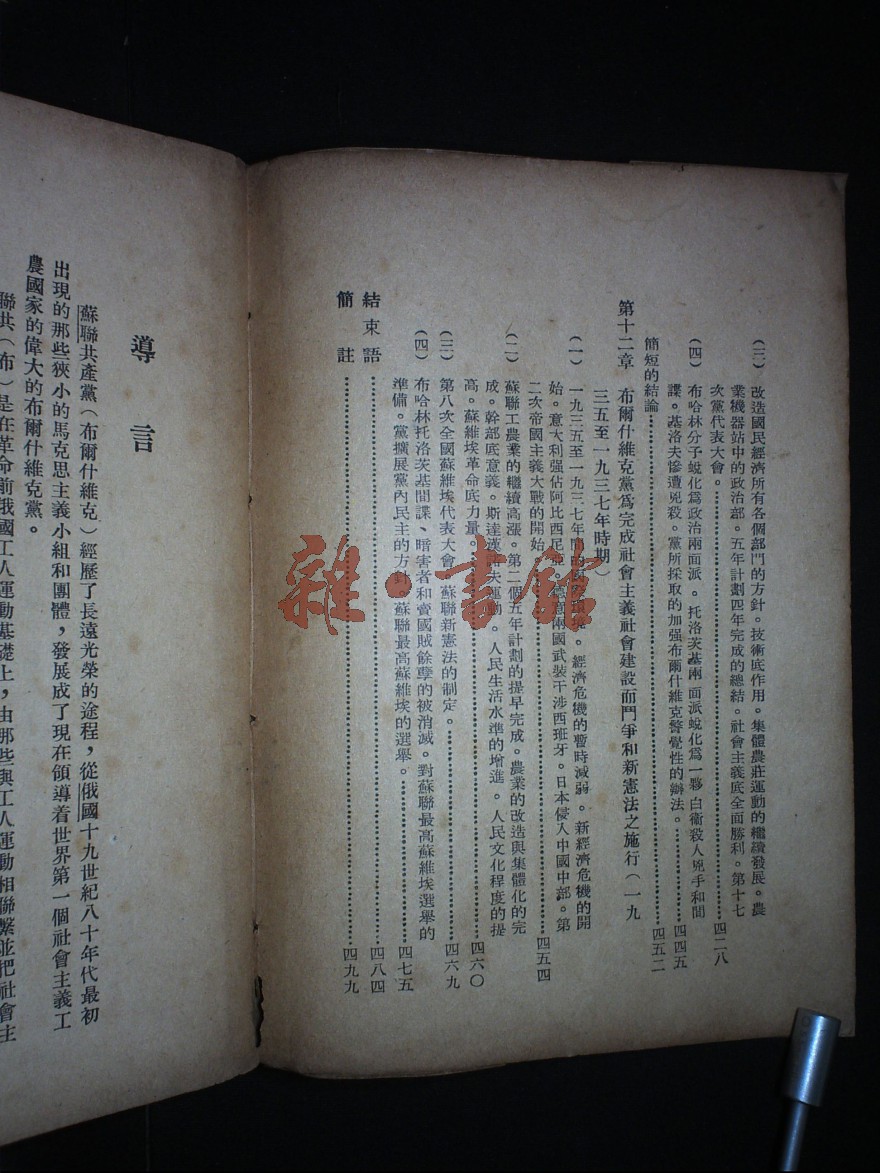 (三) 改造國民經濟所有各個部門的方針。技術底作用。集體農莊運動的繼續發展。農
業機器站中的政治部。五年計劃四年完成的總結。社會主義底全面勝利。第十七
次黨代表大會。……四二八
(四) 布哈林分子蛻化爲政治兩面派。托洛茨基兩面派蛻化爲一夥白衛殺人兇手和間
諜。基洛夫慘遭兇殺。黨所採取的加强布爾什維克警覺性的辦法。……四四五
簡短的結論……四五二
第十二章 布爾什維克黨爲完成社會主義社會建設而鬥爭和新憲法之施行(一九
三五至一九三七年時期)
(一) 一九三五至一九三七年間的。經濟危機的暫時減弱。新經濟危機的開
始。意大利强佔阿比西尼亞。德意兩國武裝干涉西班牙。日本侵入中國中部。第
二次帝國主義大戰的開始……四五四
(二) 蘇聯工農業的繼續高漲。第二個五年計劃的提早完成。農業的改造與集體化的完
成。幹部底意義。斯達漢諾夫運動。人民生活水準的增進。人民文化程度的提
高。蘇維埃革命底力量。……四六〇
(三) 第八次全國蘇維埃代表大會。蘇聯新憲法的制定。……四六九
(四) 布哈林托洛茨基間諜、暗害者和賣國賊餘孽的被消滅。對蘇聯最高蘇維埃選舉的
準備。黨擴展黨內民主的方針。蘇聯最高蘇維埃的選舉。……四七五
結束語……四八四
簡註……四九九
導言
蘇聯共產黨(布爾什維克)經歷了長遠光榮的途程,從俄國十九世紀八十年代最初
出現的那些狹小的馬克思主義小組和團體,發展成了現在領導着世界第一個社會主義工
農國家的偉大的布爾什維克黨。
聯共(布)是在革命前俄國工人運動基礎上,由那些與工人運動相聯繫並把社會主
雜·書館